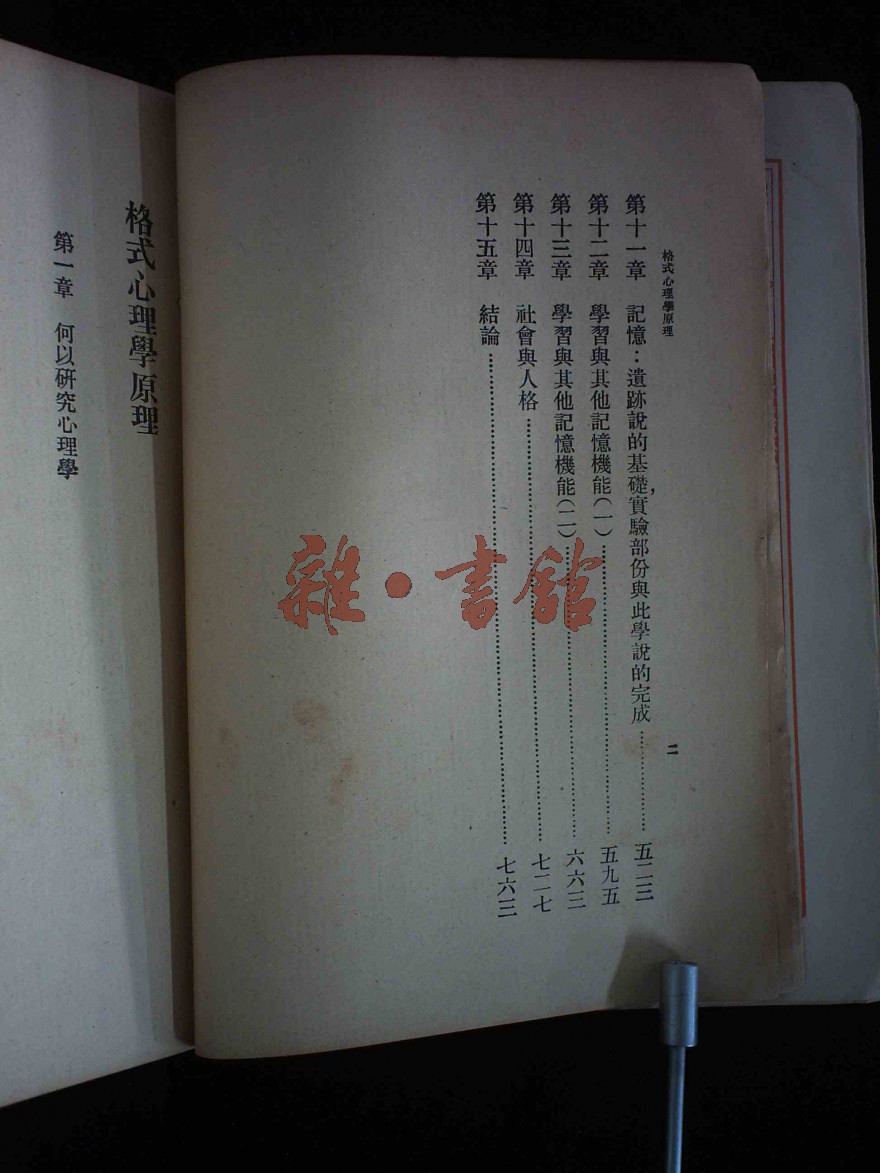 格式心理學原理
二
第十一章 記憶：遺跡說的基礎，實驗部份與此學說的完成………………五二三
第十二章 學習與其他記憶機能（一）………………五九五
第十三章 學習與其他記憶機能（二）………………六六三
第十四章 社會與人格………………七二七
第十五章 結論………………七六三
格式心理學原理
第一章 何以研究心理學
雜·書館